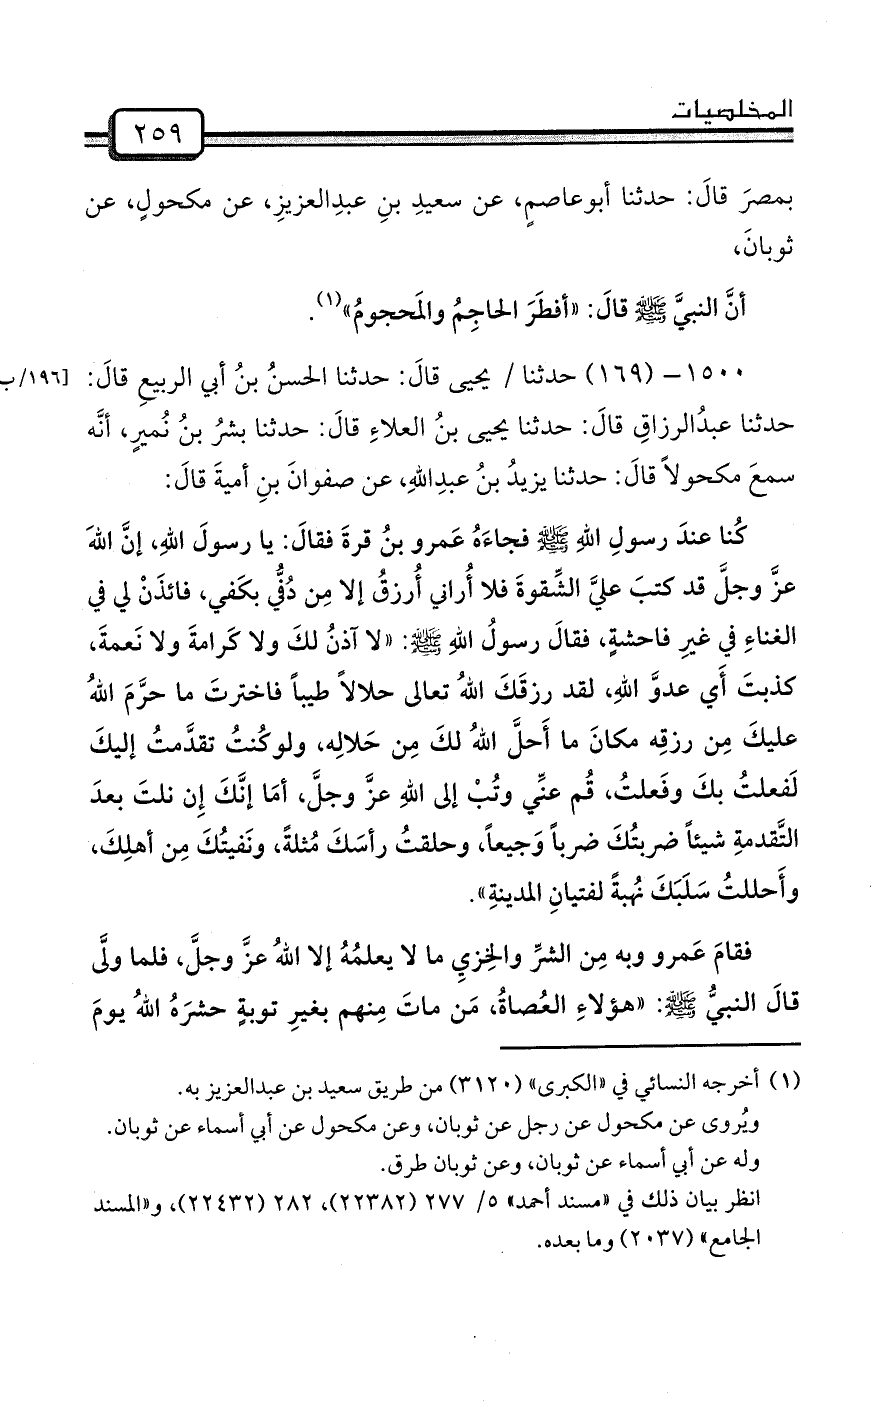 المخلصيات
٢٥٩
بمصرَ قالَ: حدثنا أبوعاصمٍ، عن سعيدِ بنِ عبدِالعزيزِ، عن مكحولٍ، عن
ثوبانَ،
أنَّ النبيَّ ﷺ قالَ: «أفطَرَ الحاجِمُ والمَحجومُ»(١).
١٥٠٠- (١٦٩) حدثنا / يحيى قالَ: حدثنا الحسنُ بنُ أبي الربيعِ قالَ: [١٩٦/ب
حدثنا عبدُالرزاقِ قالَ: حدثنا يحيى بنُ العلاءِ قالَ: حدثنا بشرُ بنُ نُميرٍ، أنَّه
سمعَ مكحولاً قالَ: حدثنا يزيدُ بنُ عبدِاللهِ، عن صفوانَ بنِ أميةَ قالَ:
كُنا عندَ رسولِ اللهِ ﷺ فجاءَهُ عَمرو بنُ قرةَ فقالَ: يا رسولَ اللهِ، إنَّ اللهَ
عزَّ وجلَّ قد كتبَ عليَّ الشِّقوةَ فلا أُراني أُرزقُ إلا مِن دُفِّي بكَفي، فائذَنْ لي في
الغناءِ في غيرِ فاحشةٍ، فقالَ رسولُ اللهِ ﷺ: «لا آذنُ لكَ ولا كَرامةَ ولا نَعمةَ،
كذبتَ أَي عدوَّ اللهِ، لقد رزقَكَ اللهُ تعالى حلالاً طيباً فاخترتَ ما حرَّمَ اللهُ
عليكَ مِن رزقِه مكانَ ما أَحلَّ اللهُ لكَ مِن حَلالِه، ولوكُنتُ تقدَّمتُ إليكَ
لَفعلتُ بكَ وفَعلتُ، قُم عنِّي وتُبْ إلى اللهِ عزَّ وجلَّ، أمَا إنَّكَ إِن نلتَ بعدَ
التَّقدمةِ شيئاً ضربتُكَ ضرباً وَجيعاً، وحلقتُ رأسَكَ مُثلةً، ونَفيتُكَ مِن أهلِكَ،
وأَحللتُ سَلَبَكَ نُهبةً لفتيانِ المدينةِ».
فقامَ عَمرو وبه مِن الشرِّ والخِزيِ ما لا يعلمُهُ إلا اللهُ عزَّ وجلَّ، فلما ولَّى
قالَ النبيُّ ﷺ: «هؤلاءِ العُصاةُ، مَن ماتَ مِنهم بغيرِ توبةٍ حشرَهُ اللهُ يومَ
(١) أخرجه النسائي في «الكبرى» (٣١٢٠) من طريق سعيد بن عبدالعزيز به.
ويُروى عن مكحول عن رجل عن ثوبان، وعن مكحول عن أبي أسماء عن ثوبان.
وله عن أبي أسماء عن ثوبان، وعن ثوبان طرق.
انظر بيان ذلك في «مسند أحمد» ٥/ ٢٧٧ (٢٢٣٨٢)، ٢٨٢ (٢٢٤٣٢)، و«المسند
الجامع» (٢٠٣٧) وما بعده.